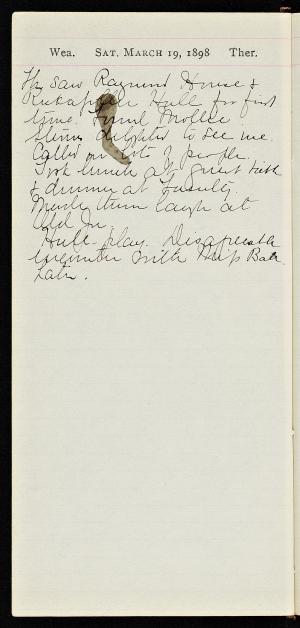 Wea. SAT. MARCH 19, 1898 Ther.
saw Raymond House &
Hull for first
time. Found Mollie
delighted to see me.
Called on lots of people.
Took lunch at guest table
& dinner at Faculty.
Made them laugh at
Hull play. Disagreeable
with Miss
Later.